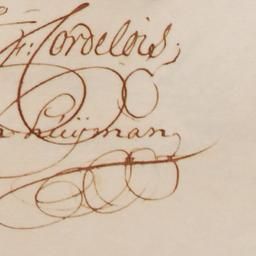 F: Cordelois;
huijman